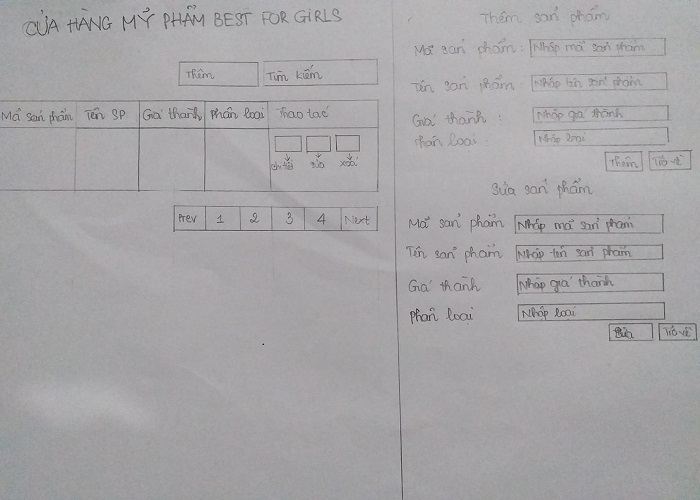 CỬA HÀNG MỸ PHẨM BEST FOR GIRLS
Thêm
Tìm kiếm
Mã sản phẩm Tên SP Giá thành Phân loại Thao tác
chi tiết sửa xoá
Prev 1 2 3 4 Next
Thêm sản phẩm
Mã sản phẩm : Nhập mã sản phẩm
Tên sản phẩm : Nhập tên sản phẩm
Giá thành : Nhập giá thành
Phân loại : Nhập loại
Thêm Trở về
Sửa sản phẩm
Mã sản phẩm Nhập mã sản phẩm
Tên sản phẩm Nhập tên sản phẩm
Giá thành Nhập giá thành
Phân loại Nhập loại
Sửa Trở về